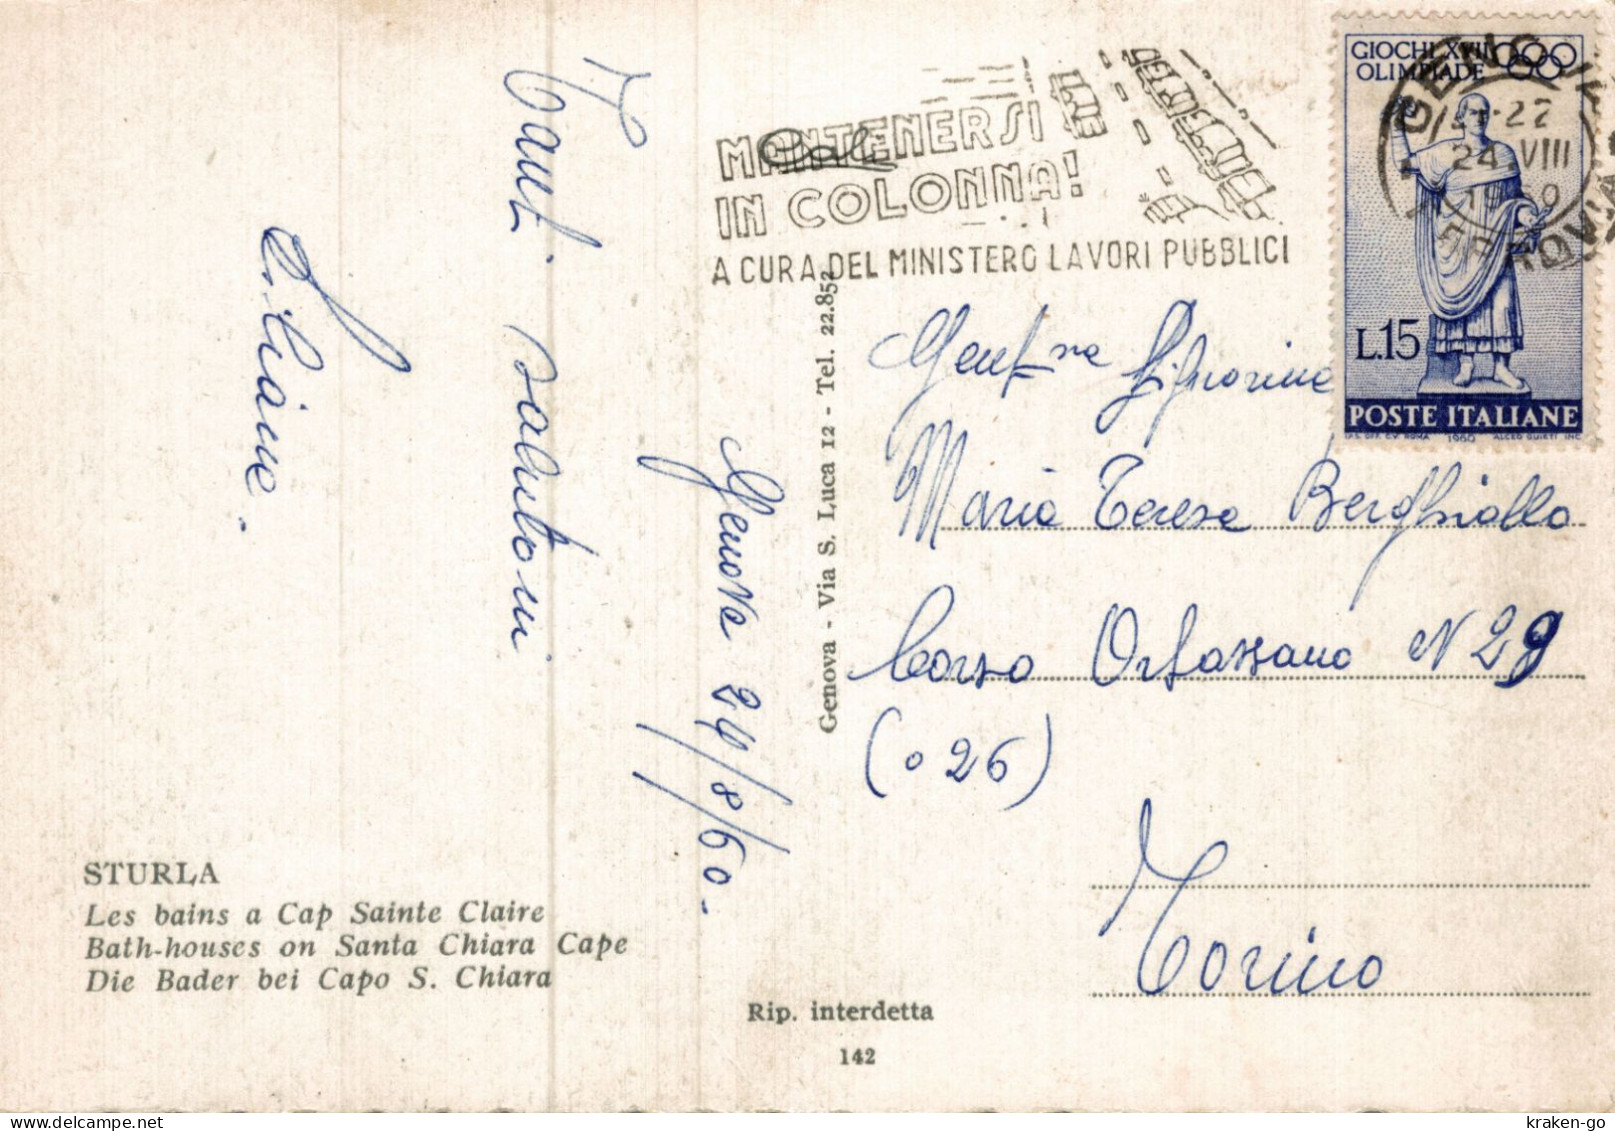 Tanti saluti
Liliane.
Genova 24/8/60.
STURLA
Les bains a Cap Sainte Claire
Bath-houses on Santa Chiara Cape
Die Bader bei Capo S. Chiara
Genova - Via S. Luca 12 - Tel. 22.852
Rip. interdetta
142
MANTENERSI
IN COLONNA!
A CURA DEL MINISTERO LAVORI PUBBLICI
GIOCHI XVII
OLIMPIADE
L.15
POSTE ITALIANE
I.P.S. OFF. C.V. ROMA 1960 ALCEO QUIETI INC.
GENOVA
21-22
24 VIII
1960
FERROVIA
Gent.ma Signorina
Maria Teresa Berghiallo
Corso Orbassano N 29
(026)
Torino
kraken-go